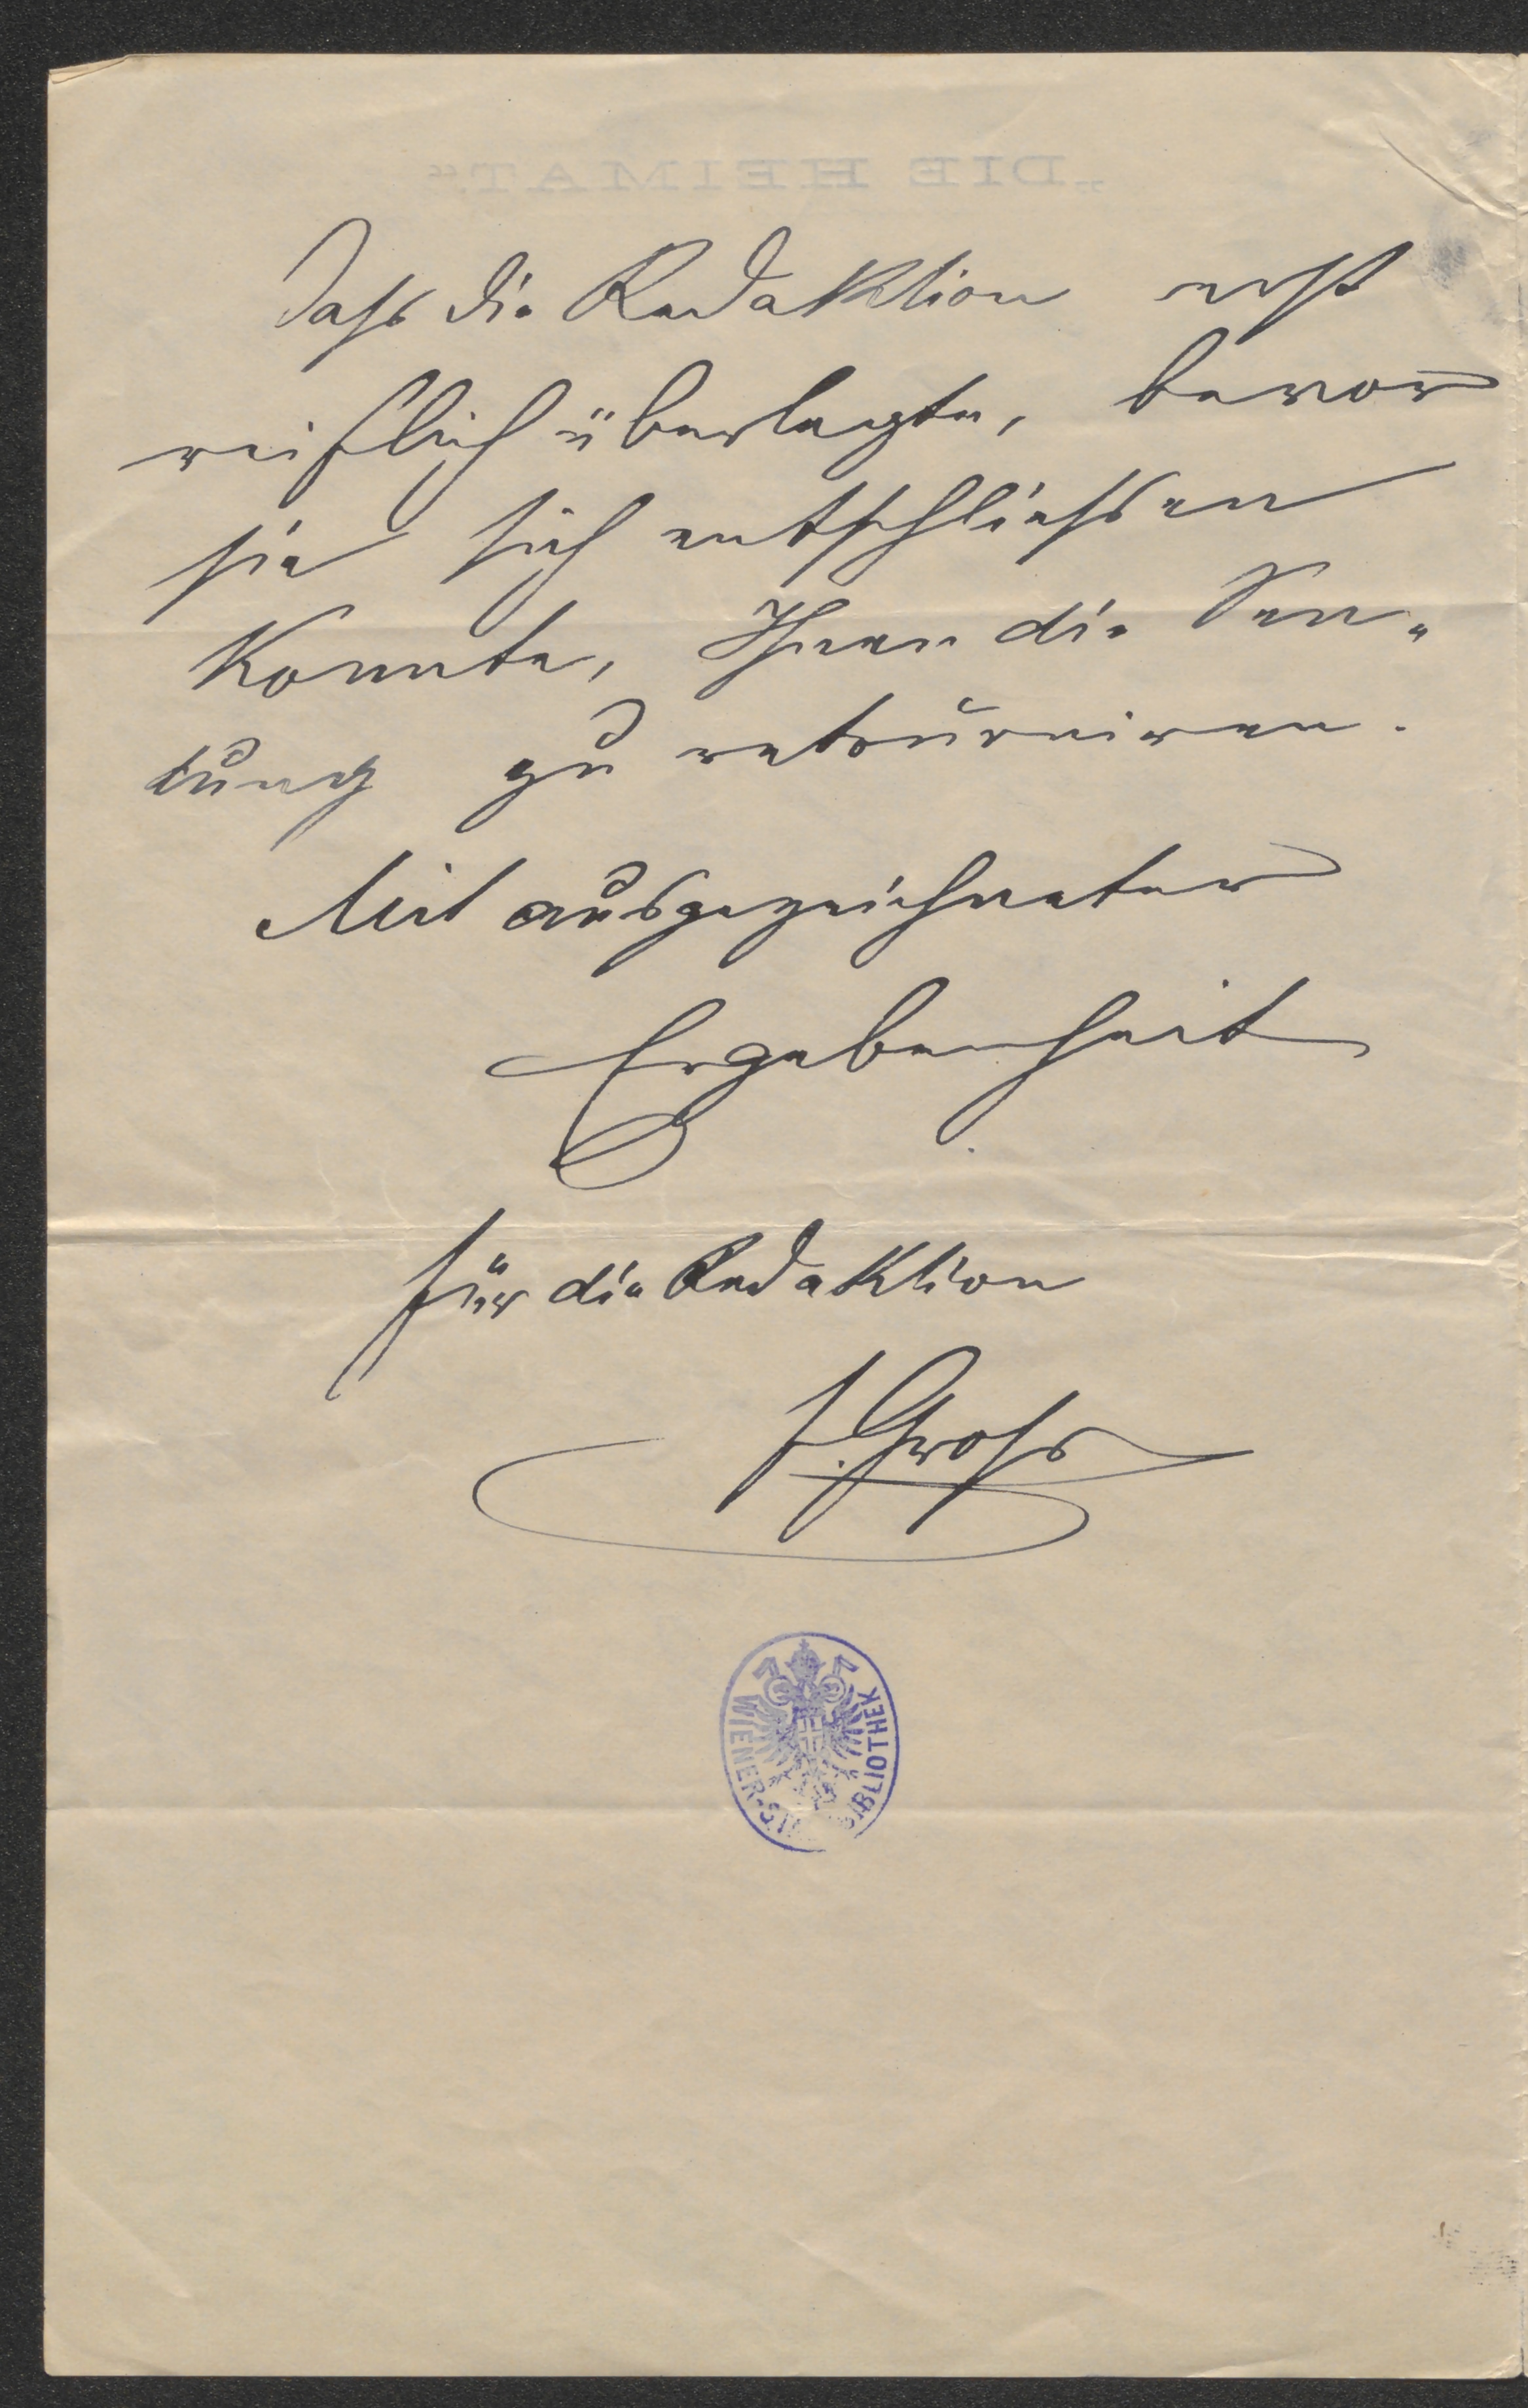 „DIE HEIMAT“
dass die Redaktion erst
reiflich überlegte, bevor
sie sich entschliessen
konnte, Ihnen die Sen„
dung zu retourniren.
Mit ausgezeichneter
Ergebenheit
für die Redaktion
F. Gross
WIENER-STADTBIBLIOTHEK